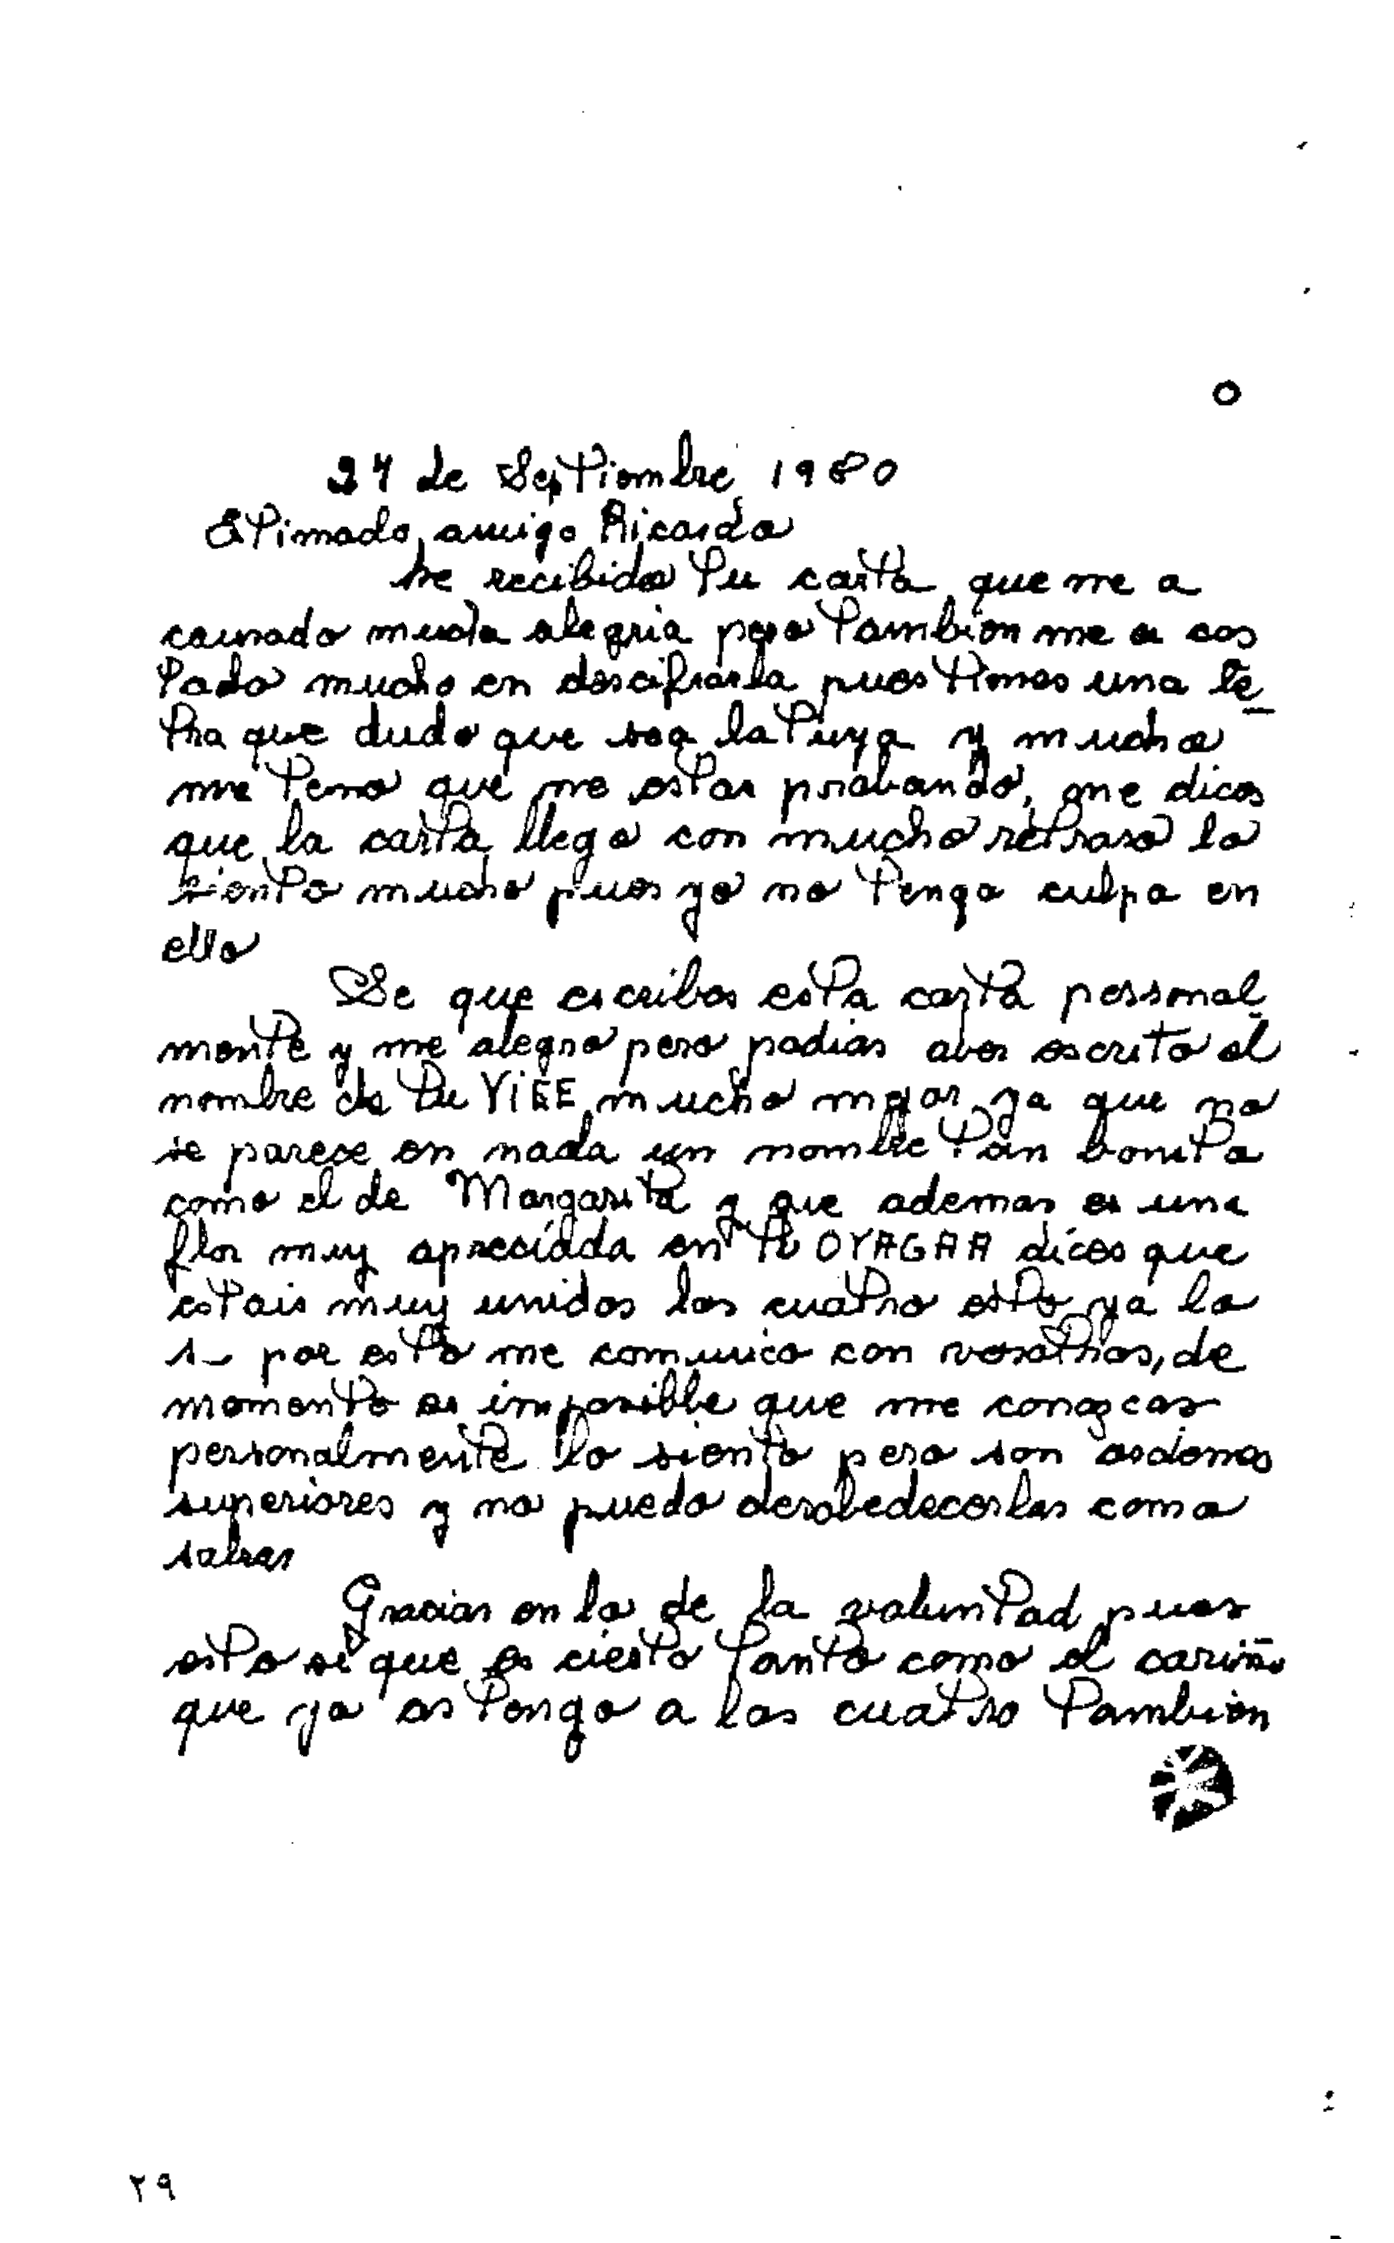 27 de Septiembre 1980
Etimado amigo Ricardo
he recibido tu carta que me a
causado mucha alegria pero tambien me a cos
tado mucho en descifrarla pues tienes una le
tra que dudo que sea la tuya y mucho
me temo que me estas probando, me dices
que la carta llego con mucho retraso lo
siento mucho pues yo no tengo culpa en
ello
Se que escribes esta carta personal
mente y me alegro pero podias aber escrito el
nombre de tu YIEE mucho mejor ya que no
se parece en nada un nombre tan bonito
como el de Margarita y que ademas es una
flor muy apreciada en OYAGAA dices que
estais muy unidos los cuatro esto ya lo
se por esto me comunico con vosotros, de
momento es imposible que me conozcas
personalmente lo siento pero son ordenes
superiores y no puedo desobedecerlas como
sabras
Gracias en lo de la voluntad pues
esto si que es cierto tanto como el cariño
que yo os tengo a los cuatro tambien
٢٩